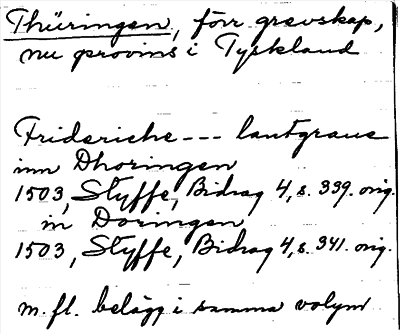 Thüringen, förr grevskap,
nu provins i Tyskland
Friderichs --- lantgraue
inn Dhoringen
1503, Styffe, Bidrag 4, s. 339. orig.
in Doringen
1503, Styffe, Bidrag 4, s. 341. orig.
m. fl. belägg i samma volym